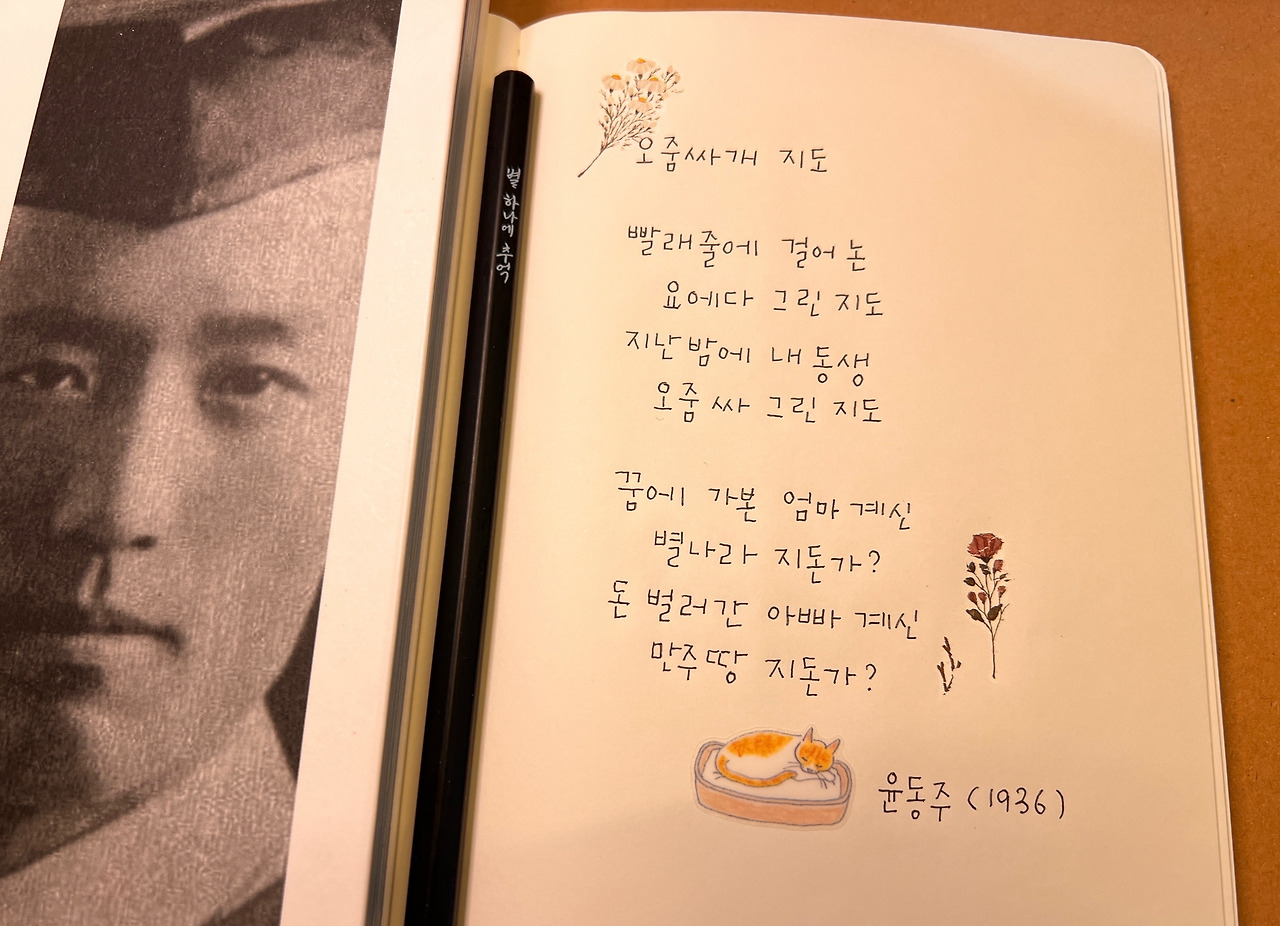 별 하나에 추억
오줌싸개 지도
빨래줄에 걸어 논
요에다 그린 지도
지난밤에 내 동생
오줌 싸 그린 지도
꿈에 가본 엄마 계신
별나라 지돈가?
돈 벌러간 아빠 계신
만주땅 지돈가?
윤동주 (1936)